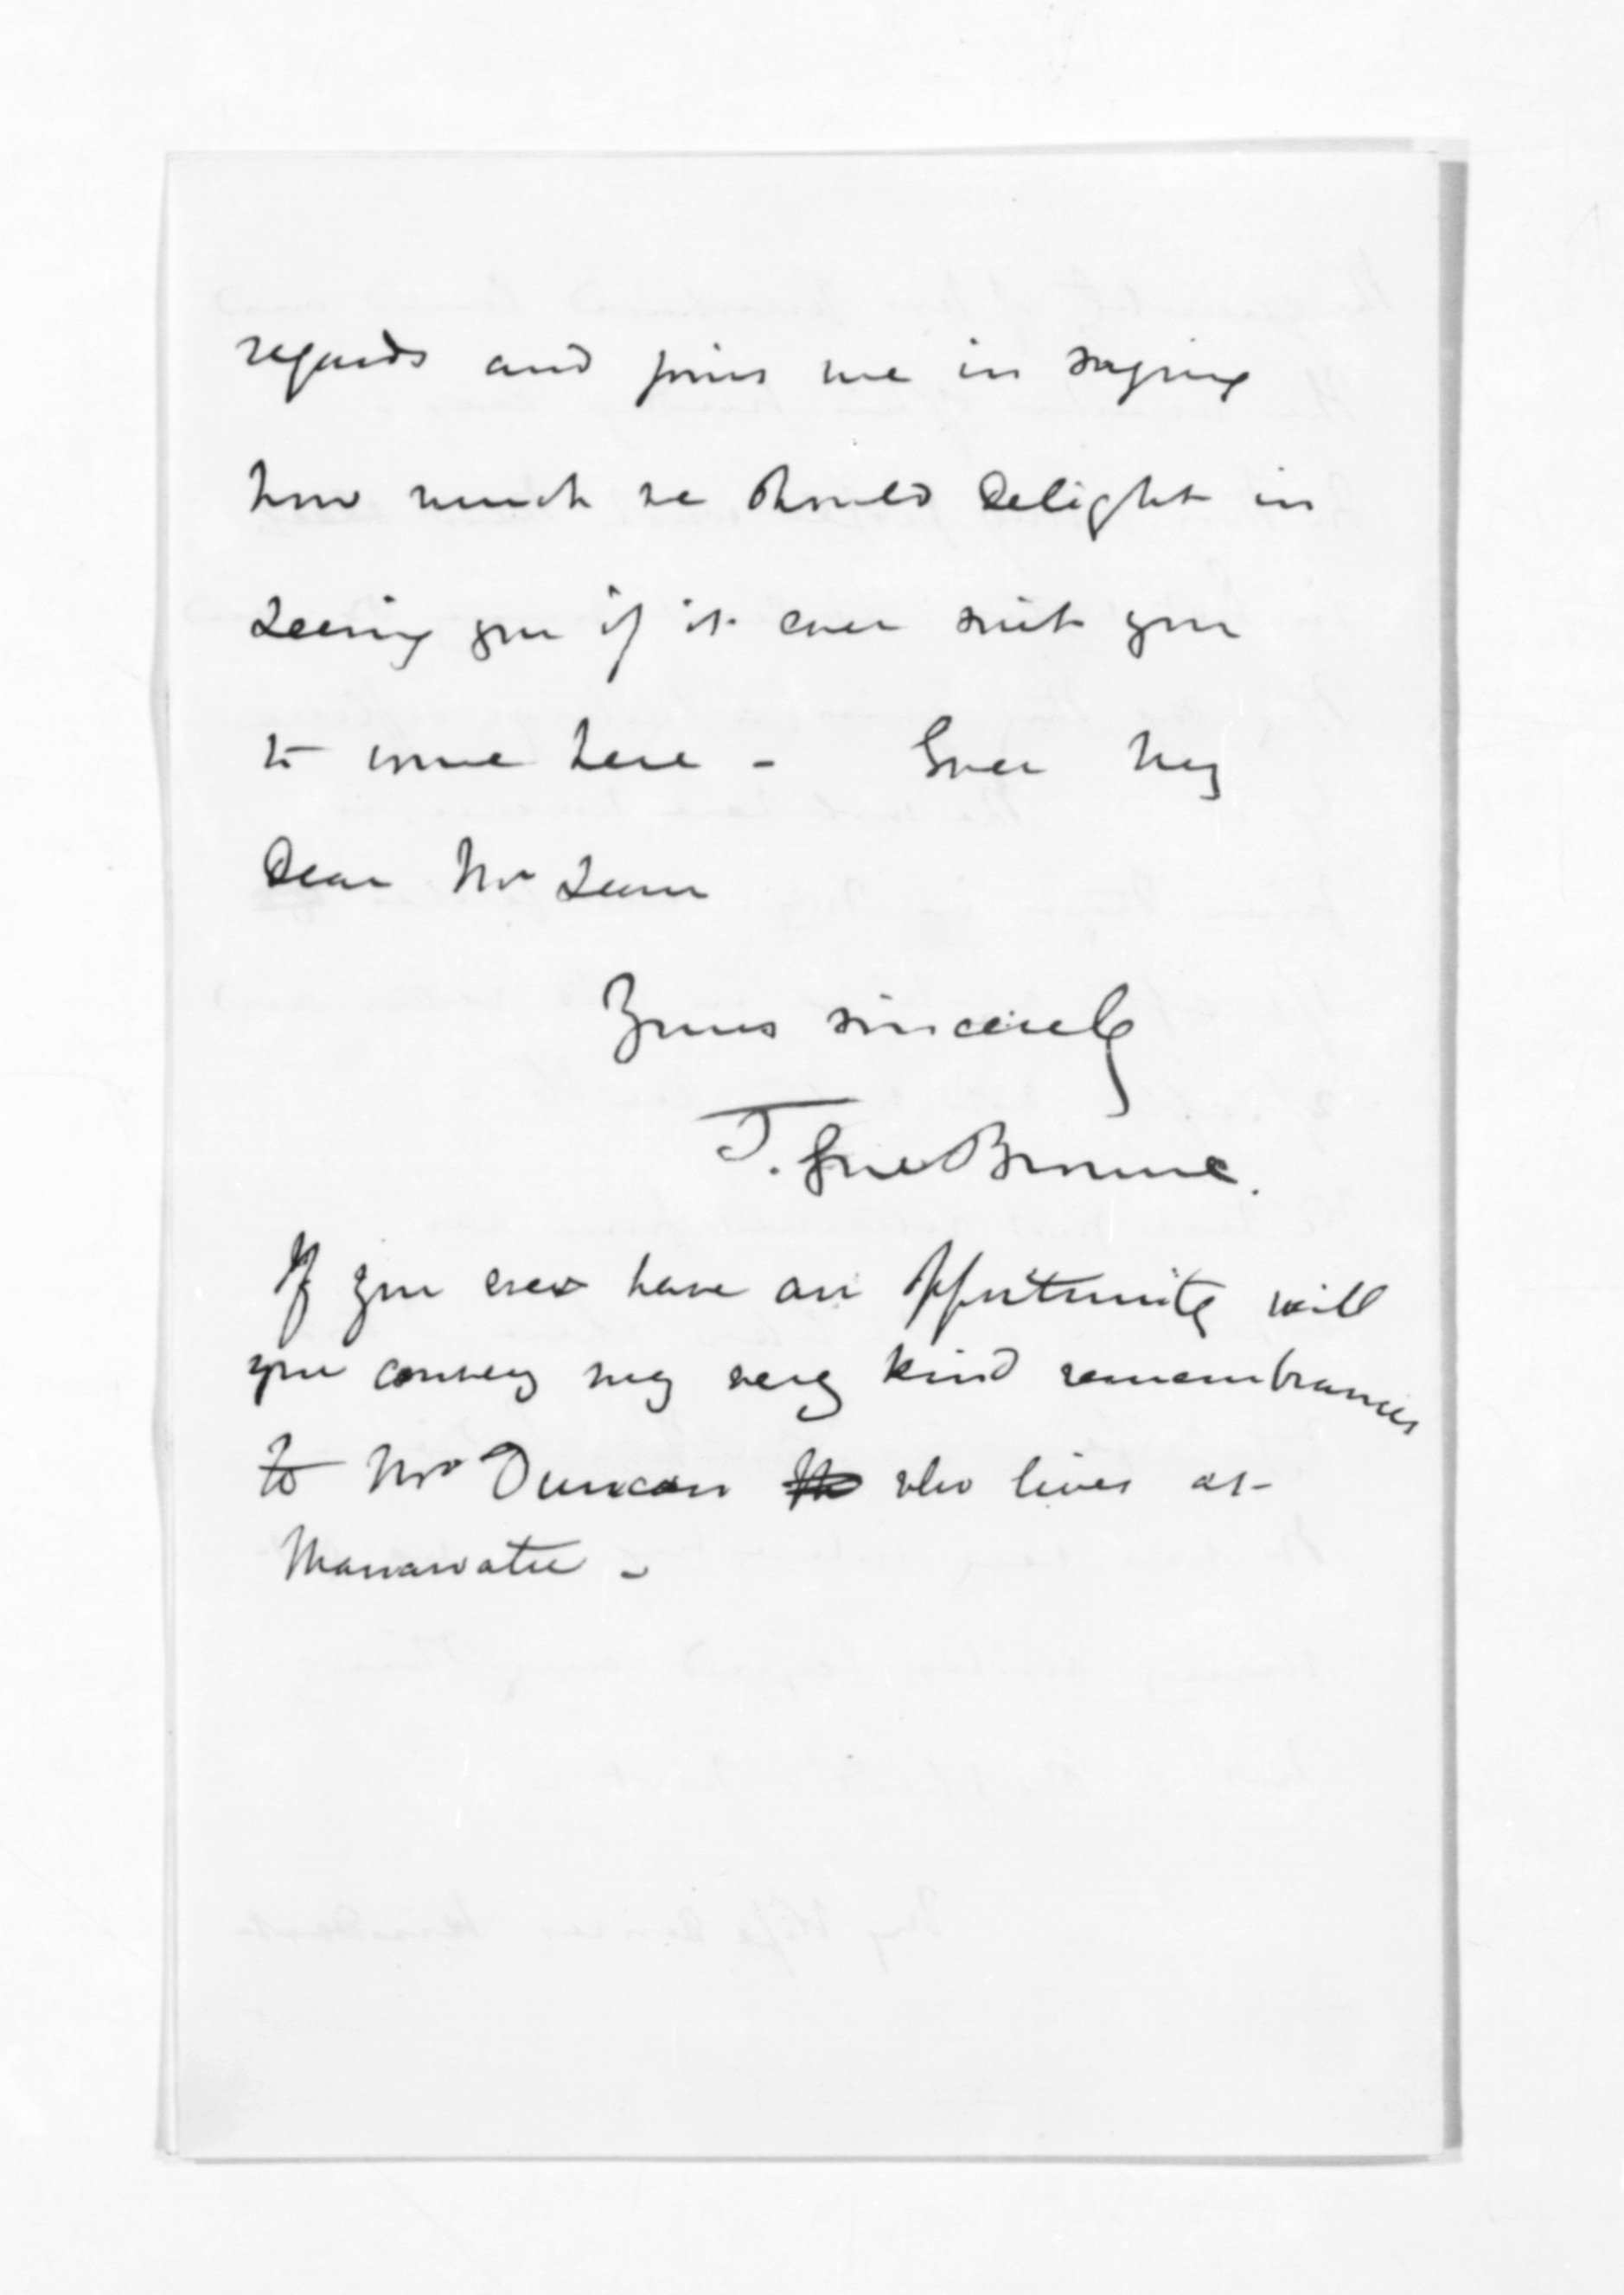 regards and joins me in saying
how much we should delight in
seeing you if it ever suit you
to come here - Ever My
Dear Mr Lean
Yours sincerely
T. Gore Browne.
If you ever have an opportunity will
you convey my very kind remembrances
to Mr Duncan who lives at
Manawatu -